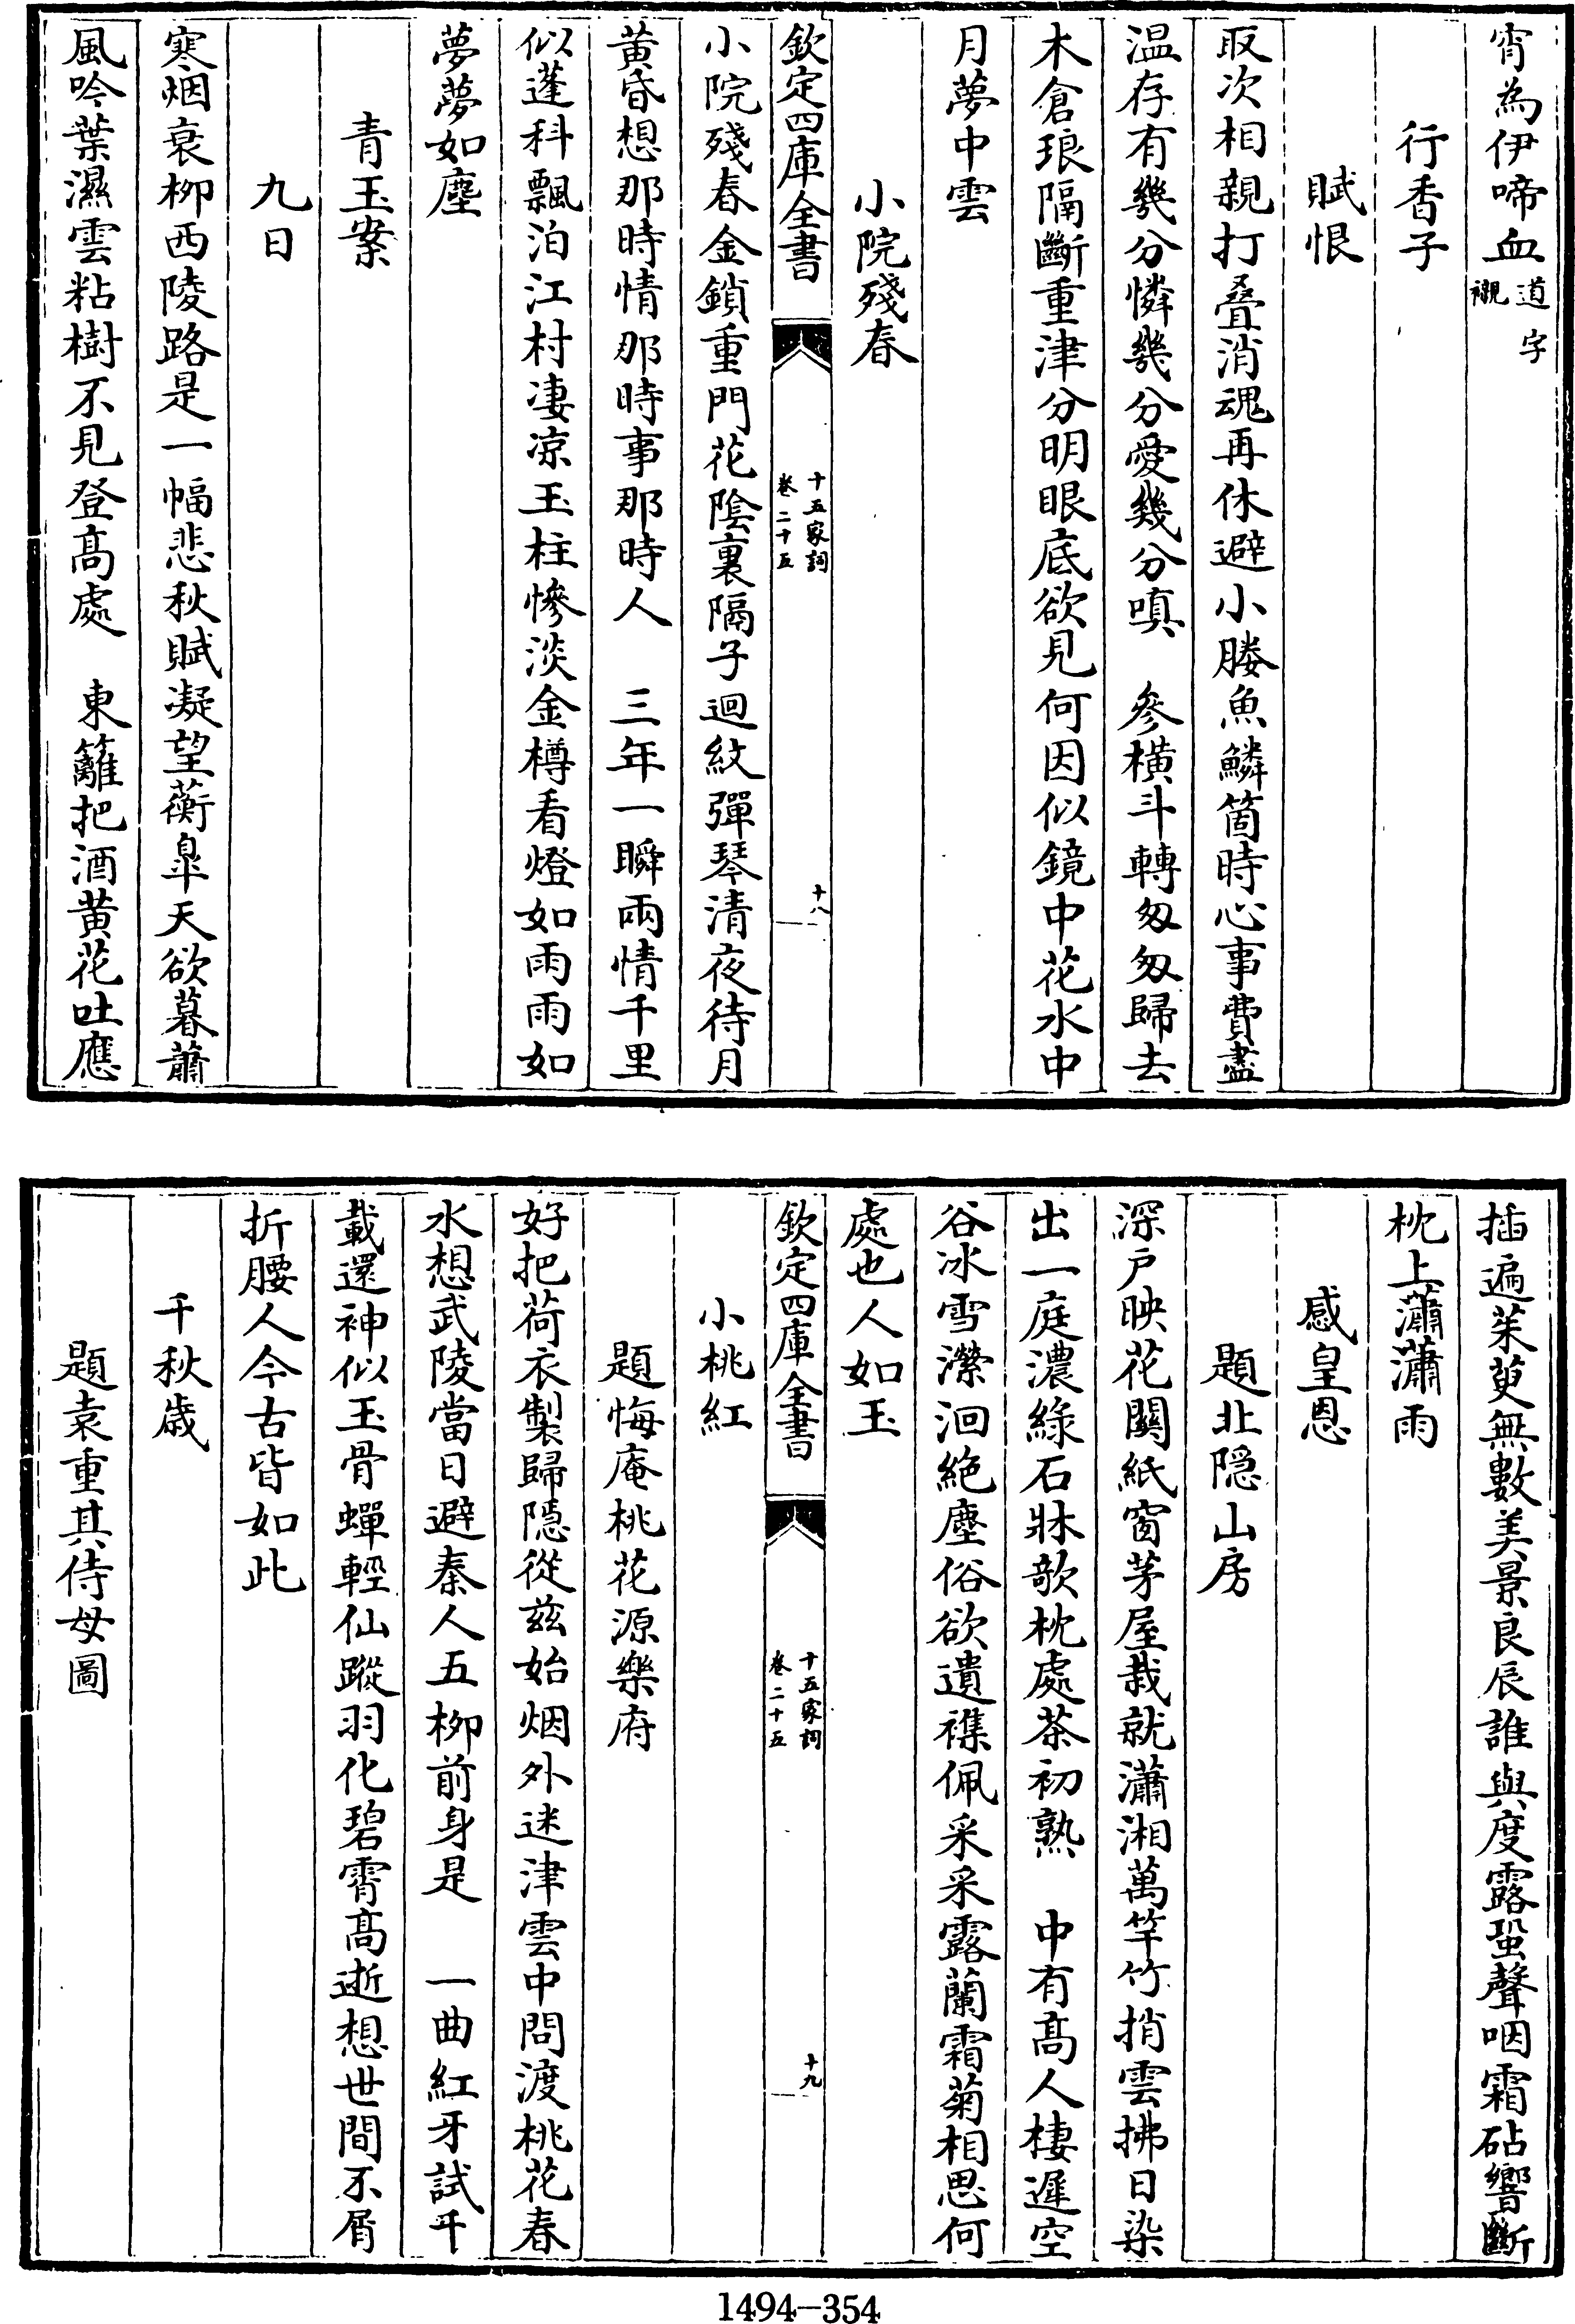 宵為伊啼血道字
襯
行香子
賦恨
取次相親打疊消魂再休避小媵魚鱗箇時心事費盡
温存有幾分憐幾分愛幾分嗔　參橫斗轉匆匆歸去
木倉琅隔斷重津分明眼底欲見何因似鏡中花水中
月夢中雲
小院殘春
欽定四庫全書
十五家詞
卷二十五
十八
小院殘春金鎖重門花陰裏隔子迴紋彈琴清夜待月
黄昏想那時情那時事那時人　三年一瞬兩情千里
似蓬科飄泊江村凄凉玉柱慘淡金樽看燈如雨雨如
夢夢如塵
青玉案
九日
寒烟衰栁西陵路是一幅悲秋賦凝望蘅臯天欲暮蕭
風吟葉濕雲粘樹不見登髙處　東籬把酒黄花吐應
插遍茱萸無數美景良辰誰與度露蛩聲咽霜砧響斷
枕上瀟瀟雨
感皇恩
題北隐山房
深戶映花關紙窗茅屋栽就瀟湘萬竿竹捎雲拂日染
出一庭濃綠石牀欹枕處茶初熟　中有髙人棲遲空
谷冰雪瀠洄絶塵俗欲遺襍佩采采露蘭霜菊相思何
處也人如玉
欽定四庫全書
十五家詞
卷二十五
十九
小桃紅
題悔庵桃花源樂府
好把荷衣製歸隱從兹始烟外迷津雲中問渡桃花春
水想武陵當日避秦人五栁前身是　一曲紅牙試千
載還神似玉骨蟬輕仙蹤羽化碧霄髙逝想世間不屑
折腰人今古皆如此
千秋歲
題袁重其侍母圖
1494-354